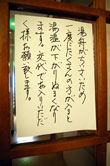 湯舟がちいさいため
一度にたくさんの方が入ると
湯温が下がりぬるくなり
ます。交代でお入りいただ
く様お願い致します。